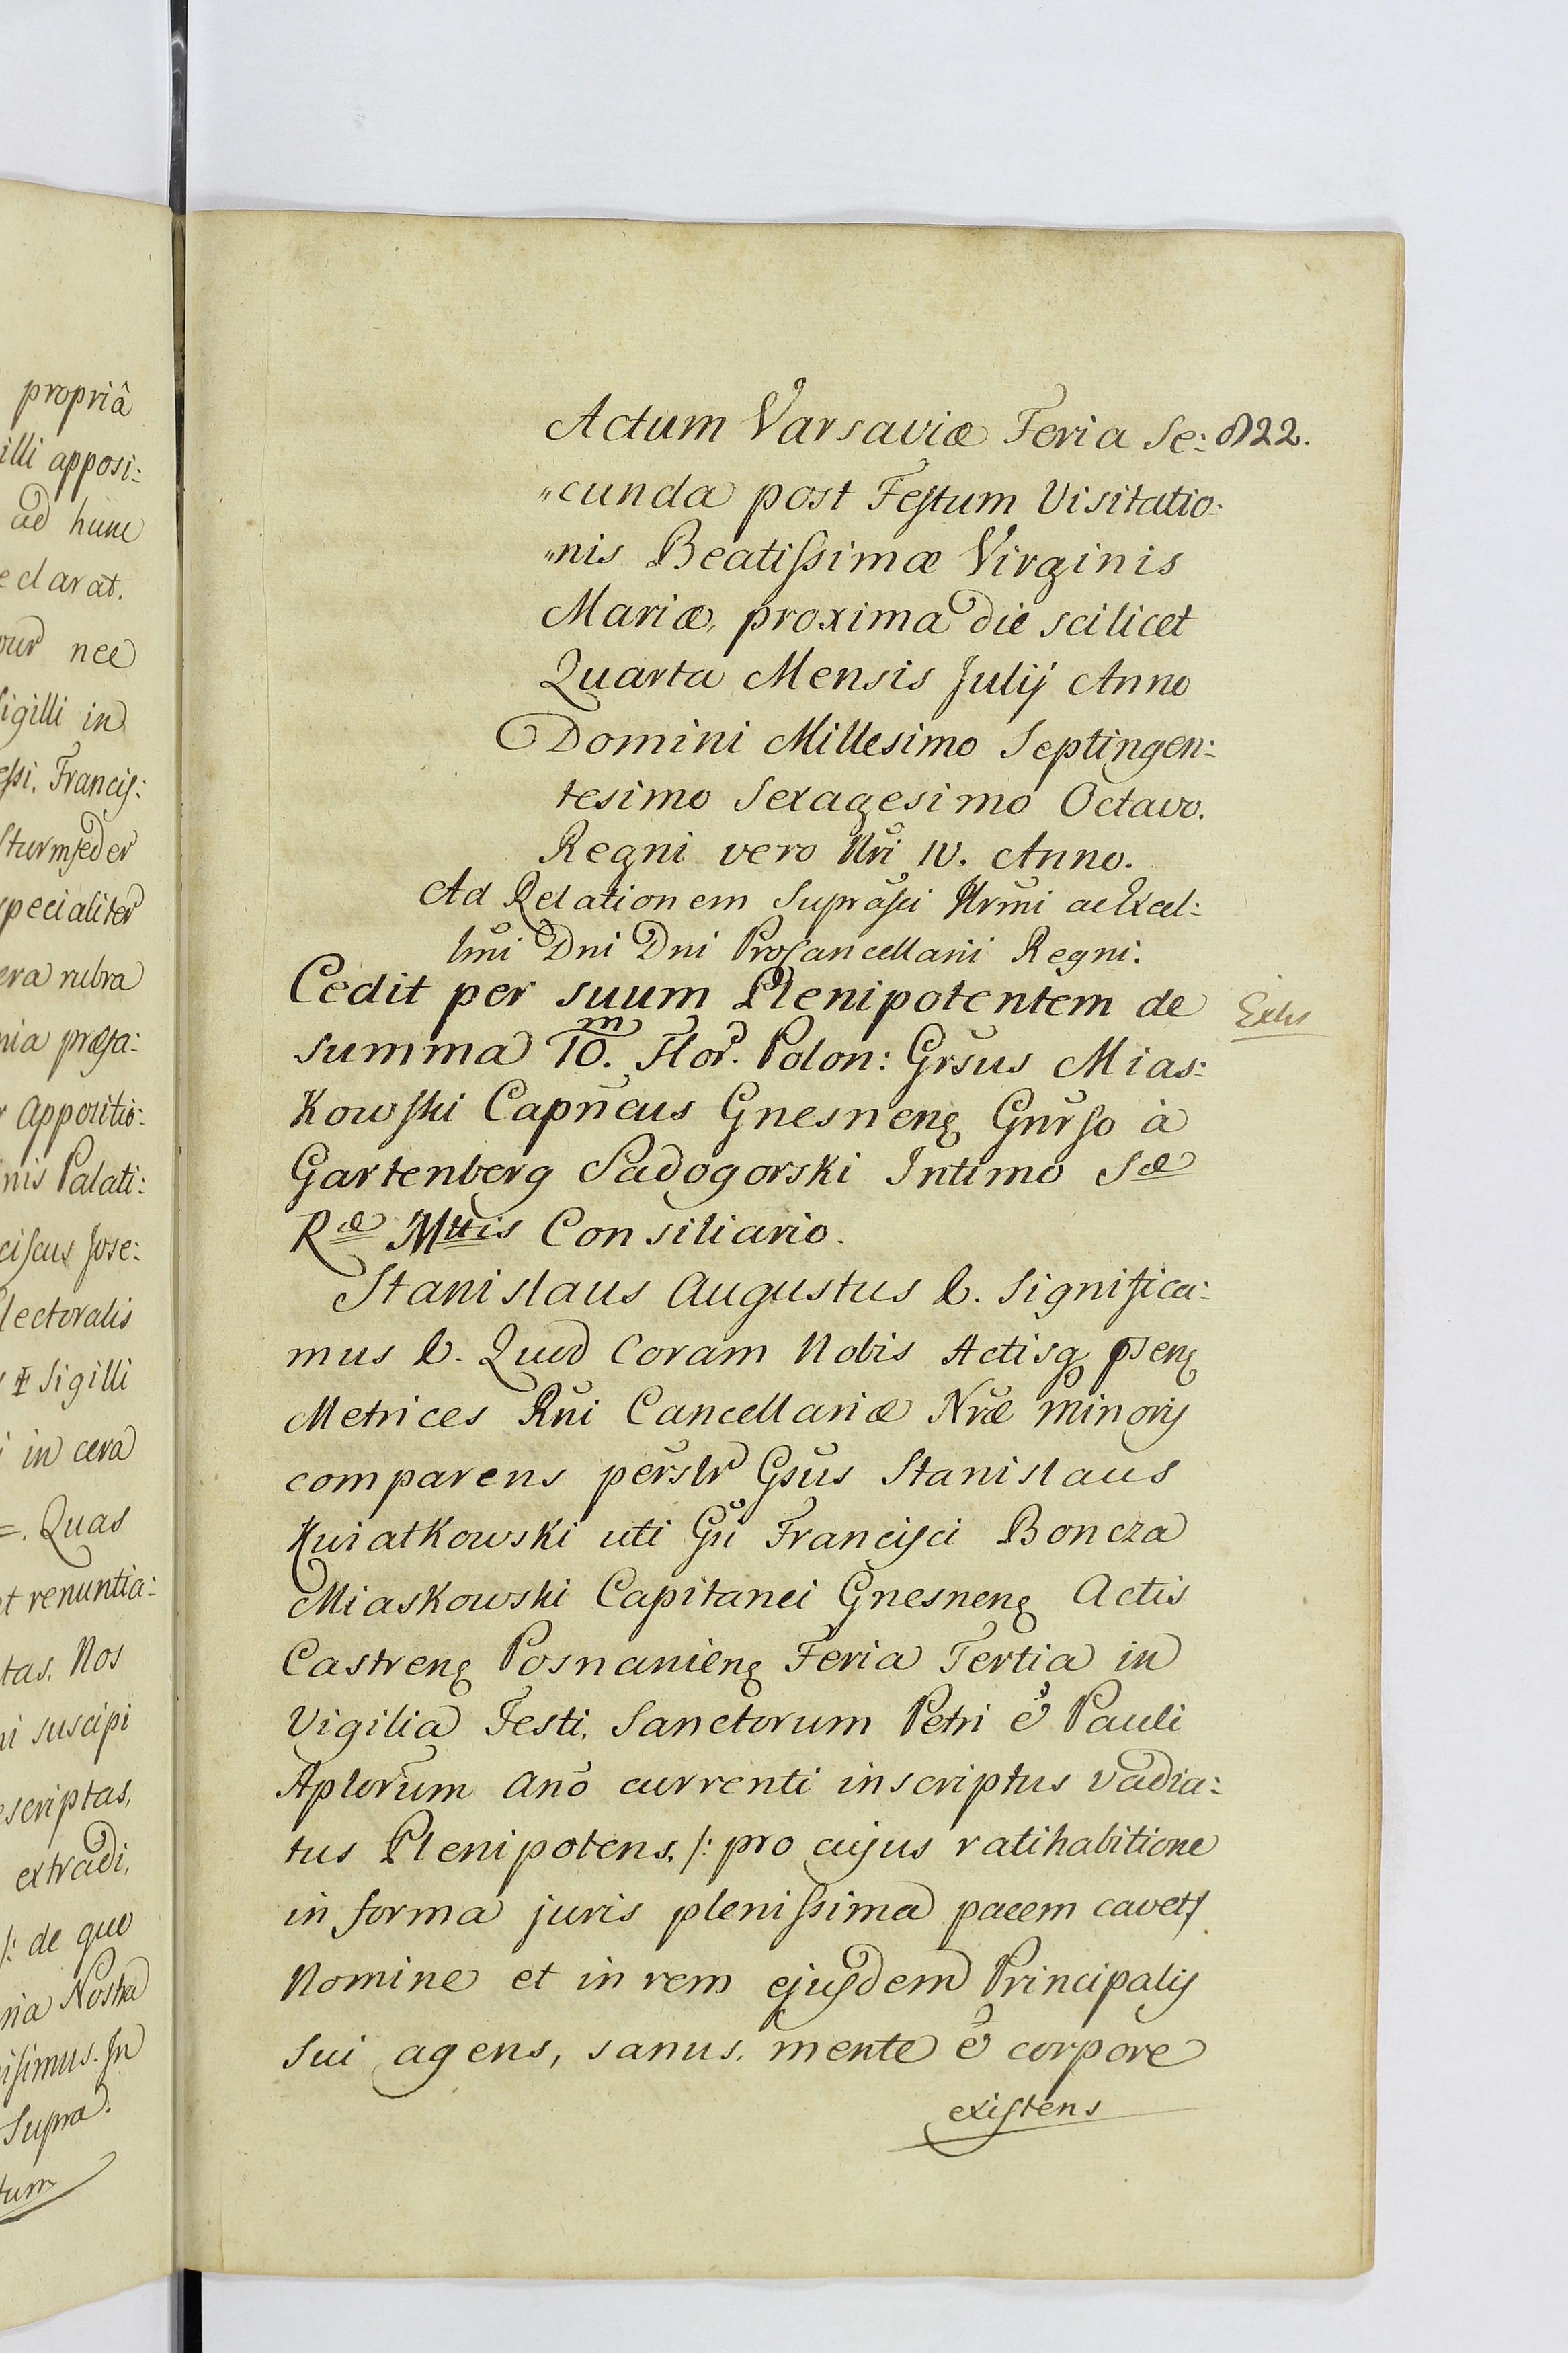 propriâ
illi apposi:
ad hunc
eclarat.
our nec
Sigilli in
essi. Francis:
Sturmfeder
specialiter
cera rubra
nia præfa:
r Appositio:
inis Palati:
ciscus Jose:
lectoralis
Sigilli
i in cera
=. Quas
et renuntia:
tas, Nos
ni suscipi
escriptas,
extradi,
/: de quo
ria Nostra
issimus. In
Supra.
tum
Actum Varsaviæ Feria Se: 822.
"cunda post Festum Visitatio:
"nis Beatissimæ Virginis
Mariæ, proxima die scilicet
Quarta Mensis Julij Anno
Domini Millesimo Septingen:
tesimo Sexagesimo Octavo.
Regni vero Nri IV. Anno.
Ad Relationem Suprasci Illrmi ac Excel:
lmi Dni Dni ProCancellarii Regni.
Cedit per suum Plenipotentem de Exhs
summa 10.m Flor. Polon: Grsus Mias:
Kowski Capneus Gnesneng Gnrso à
Gartenberg Sadogorski Intimo Sæ
Ræ Mttis Consiliario.
Stanislaus Augustus &. Significa:
mus &. Quod Coram Nobis Actisq pseng
Metrices Rni Cancellariæ Nræ minoris
comparens perslr Gsus Stanislaus
Kwiatkowski uti Gu Francisci Boncza
Miaskowski Capitanei Gnesneng Actis
Castreng Posnanieng Feria Tertia in
Vigilia Festi, Sanctorum Petri & Pauli
Aplorum Ano currenti inscriptus vadia:
tus Plenipotens, /: pro cujus ratihabitione
in forma juris plenissima pacem cavet/
Nomine et in rem ejusdem Principalis
Sui agens, sanus, mente & corpore
existens